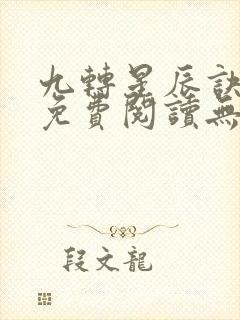 九轉星辰訣
免費閱讀無
段文龍